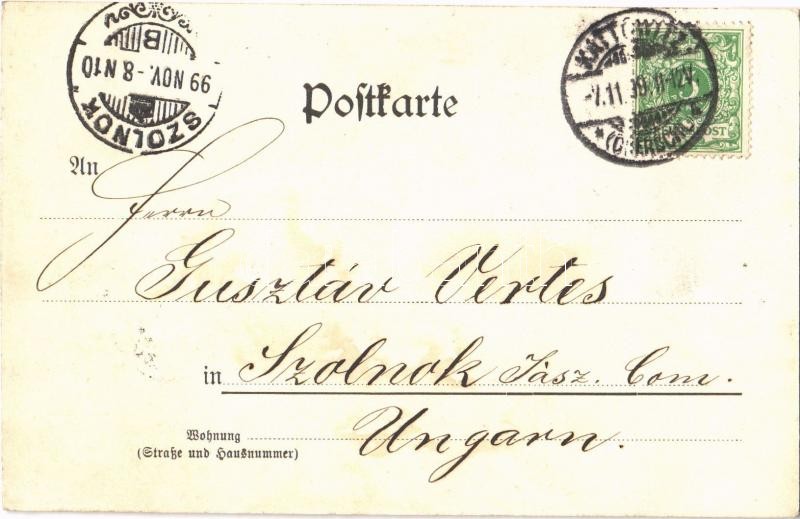 SZOLNOK
99 NOV. - 8 N10
B
Postkarte
KATTOWITZ
-7.11.99. 11-12V.
* (OBERSCHL.)
5
An
Herrn
Gusztáv Vertes
in Szolnok Jász. Com.
Ungarn.
Wohnung
(Straße und Hausnummer)